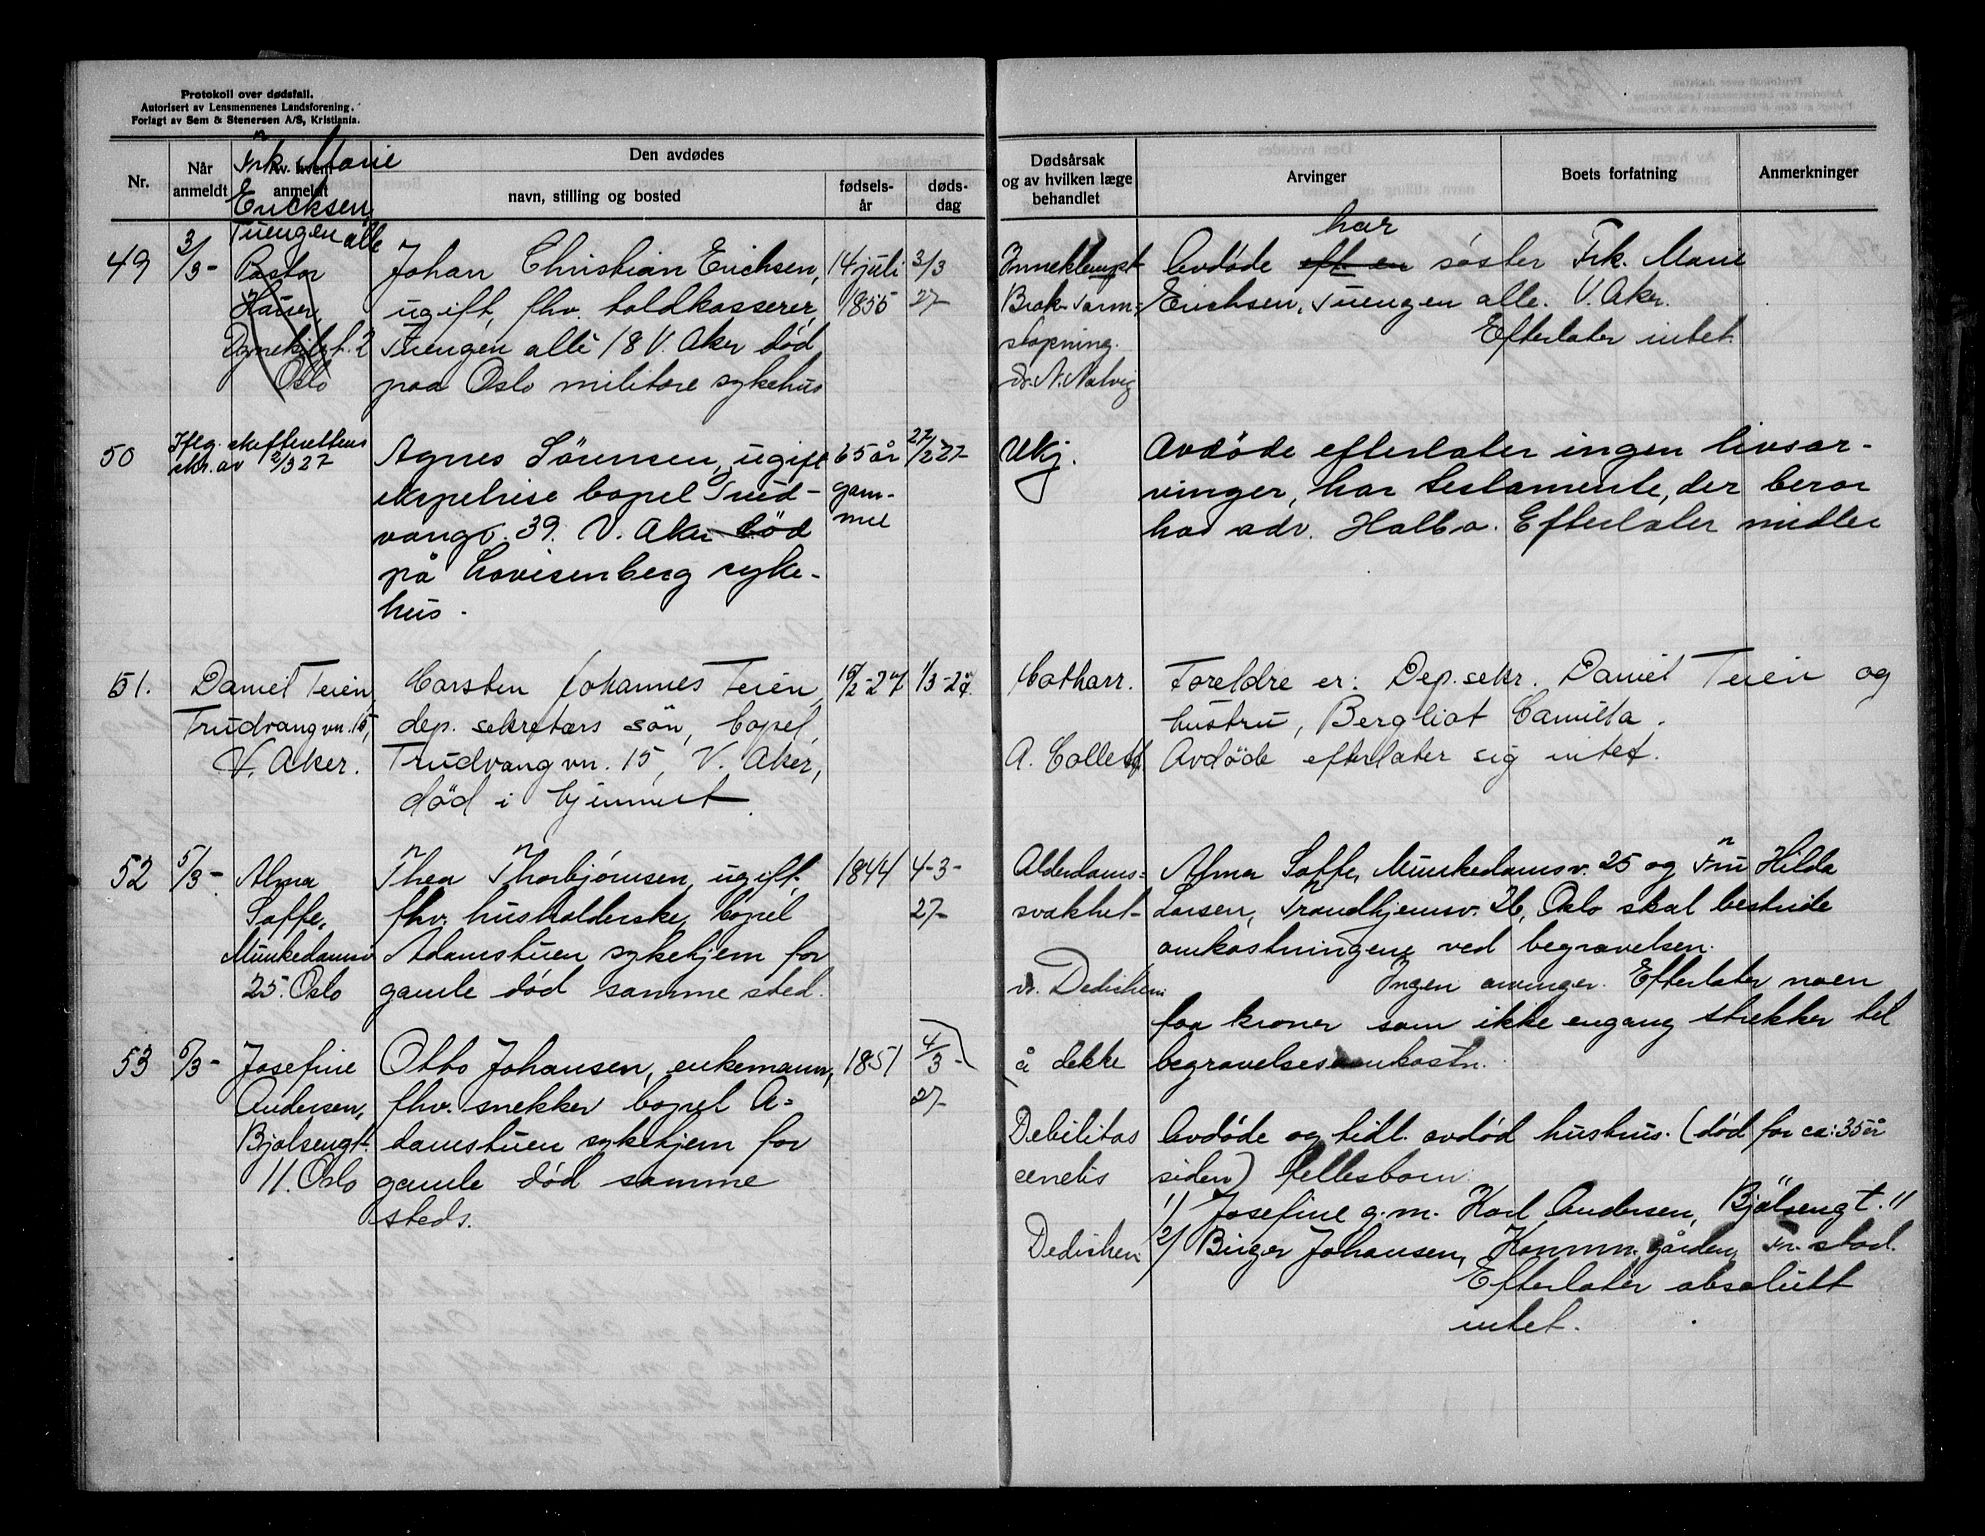 Protokoll over dødsfall.
Autorisert av Lensmennenes Landsforening.
Forlagt av Sem & Stenersen A/S, Kristiania.
Nr.
Når anmeldt
Av hvem anmeldt
Den avdødes
navn, stilling og bosted
fødsels-år
døds-dag
Dødsårsak og av hvilken læge behandlet
Arvinger
Boets forfatning
Anmerkninger
49
3/3-
Frk. Marie
Ericksen,
Tuengen alle
Pastor
Hauer,
Oslo
Johan Christian Erichsen,
ugift, fhv. toldkasserer,
Tuengen allé 18 V. Aker død
paa Oslo militære sykehus
14 juli
1855
3/3
27-
Inneklempt
Brok-Tarm-
stopning.
dr. N. Natvig
har
Avdøde eft en søster Frk. Marie
Erichsen, Tuengen alle. V. Aker.
Efterlater intet.
50
Iflg. skifterettens
skr. av 2/3 27
Agnes Sørensen, ugift
bopel Trud-
vangv. 39. V. Aker død
på Lovisenberg syke-
hus.
65 år
gam-
mel
27/2 27-
Ukj.
Avdøde efterlater ingen livsar-
vinger, har testamente, der beror
hos adv. Halbo. Efterlater midler
51.
Daniel Teien,
Trudvangvn. 15,
V. Aker.
Carsten Johannes Teien,
dep. sekretærs søn, bopel,
Trudvangvn. 15, V. Aker,
død i hjemmet.
16/2-27
1/3-27.
Catharr.
A. Collett
Foreldre er: Dep. sekr. Daniel Teien og
hustru, Bergliot Camilla.
Avdøde efterlater sig intet.
52
5/3-
Alma
Soffe,
Munkedamsv
25. Oslo
Thea Thorbjørnsen, ugift,
fhv. husholderske, bopel
Adamstuen sykehjem for
gamle død samme sted.
1844
4-3-
27-
Alderdoms-
svakhet-
dr. Dedichen
Alma Soffe, Munkedamsv. 25 og Fru Hilda
Larsen, Trondhjemsv. 26, Oslo skal bestride
omkostningene ved begravelsen.
Ingen arvinger. Efterlater noen
faa kroner som ikke engang strekker til
å dekke begravelsesomkostn.
53
5/3-
Josefine
Andersen,
Bjølsengt.
11. Oslo
Otto Johansen, enkemann,
fhv. snekker bopel A-
damstuen sykehjem for
gamle død samme
steds.
1851
4/3-
27-
Debilitas
cenetis
Dedichen
Avdøde og tidl. avdød hustrus. (død for ca: 35 år
siden) fellesbarn:
1/ Josefine g.m. Karl Andersen, Bjølsengt. 11
2/ Birger Johansen, Kommn.gården, Fr.stad.
Efterlater absolutt
intet.